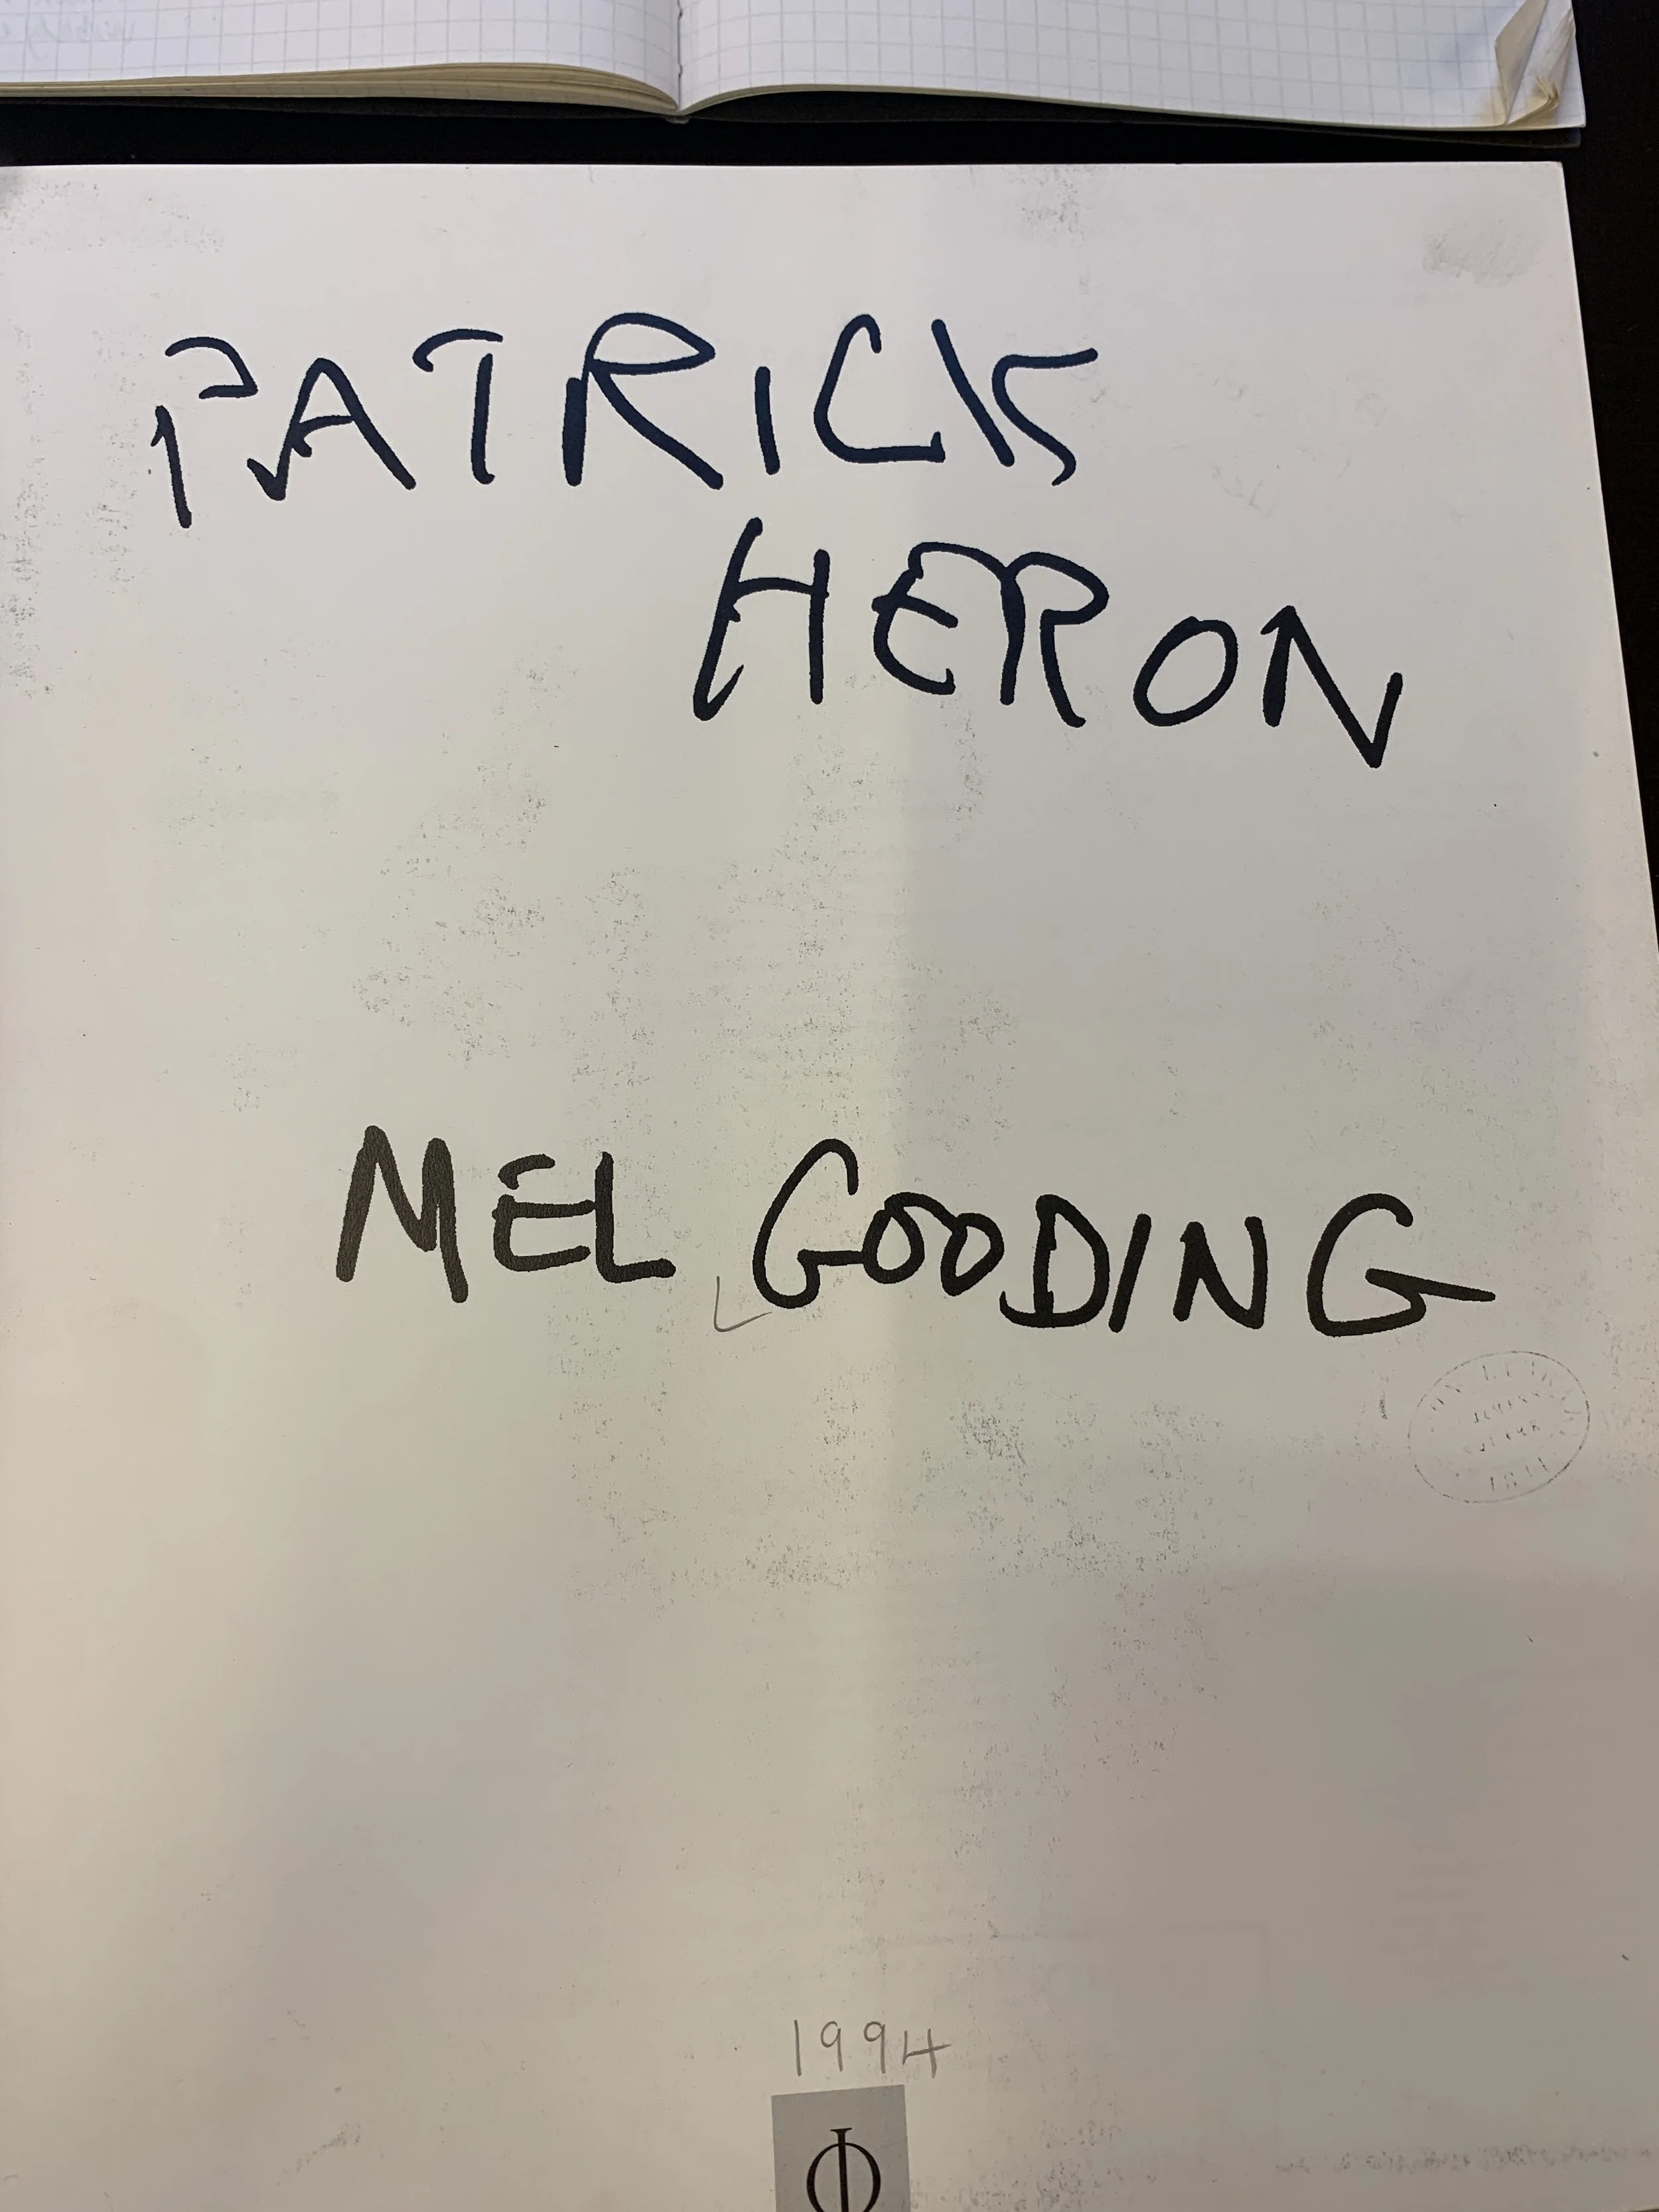 PATRICK
HERON
MEL GOODING
1994
Φ